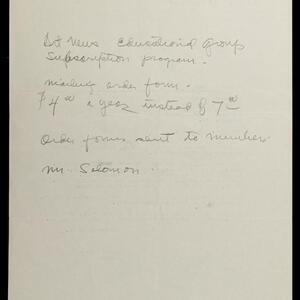 Art News Educational Group
Subscription program.
mailing order form.
$4.00 a year instead of 7.00
Order forms sent to members
Mr. Solomon.